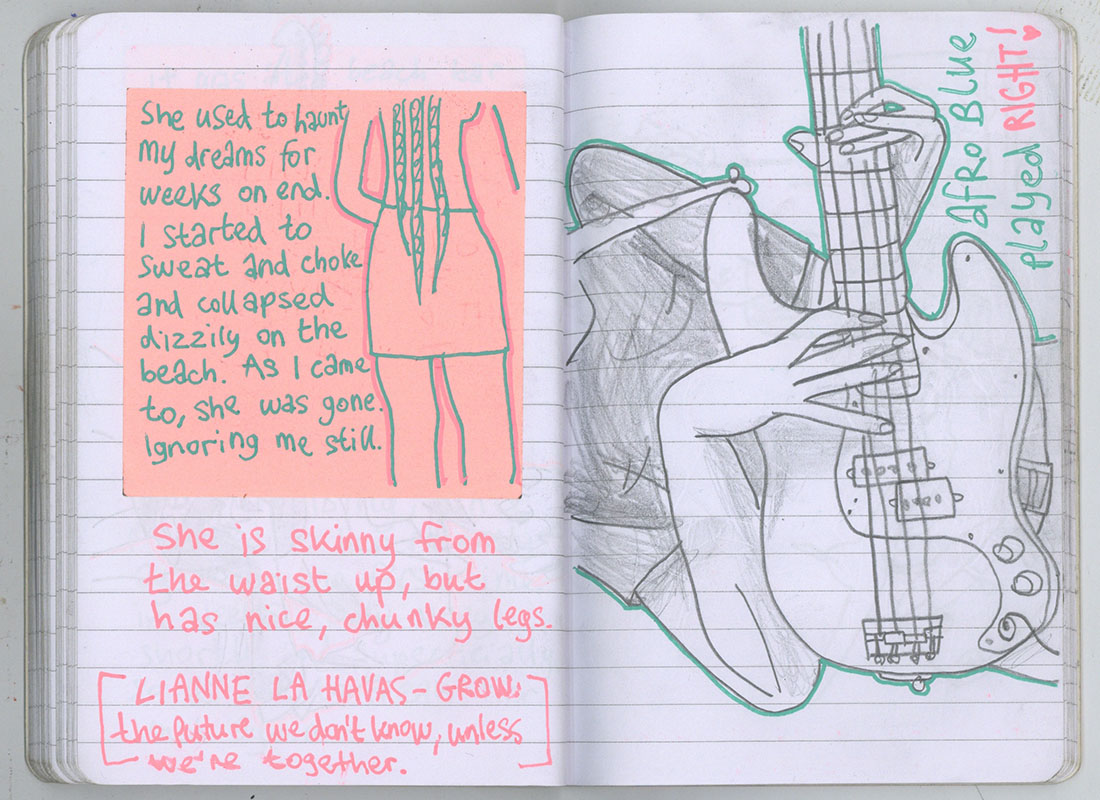 She used to haunt
my dreams for
weeks on end.
I started to
sweat and choke
and collapsed
dizzily on the
beach. As I came
to, she was gone.
Ignoring me still.
She is skinny from
the waist up, but
has nice, chunky legs.
[LIANNE LA HAVAS - GROW:
the future we don't know, unless
we're together.]
Afro Blue
played RIGHT!